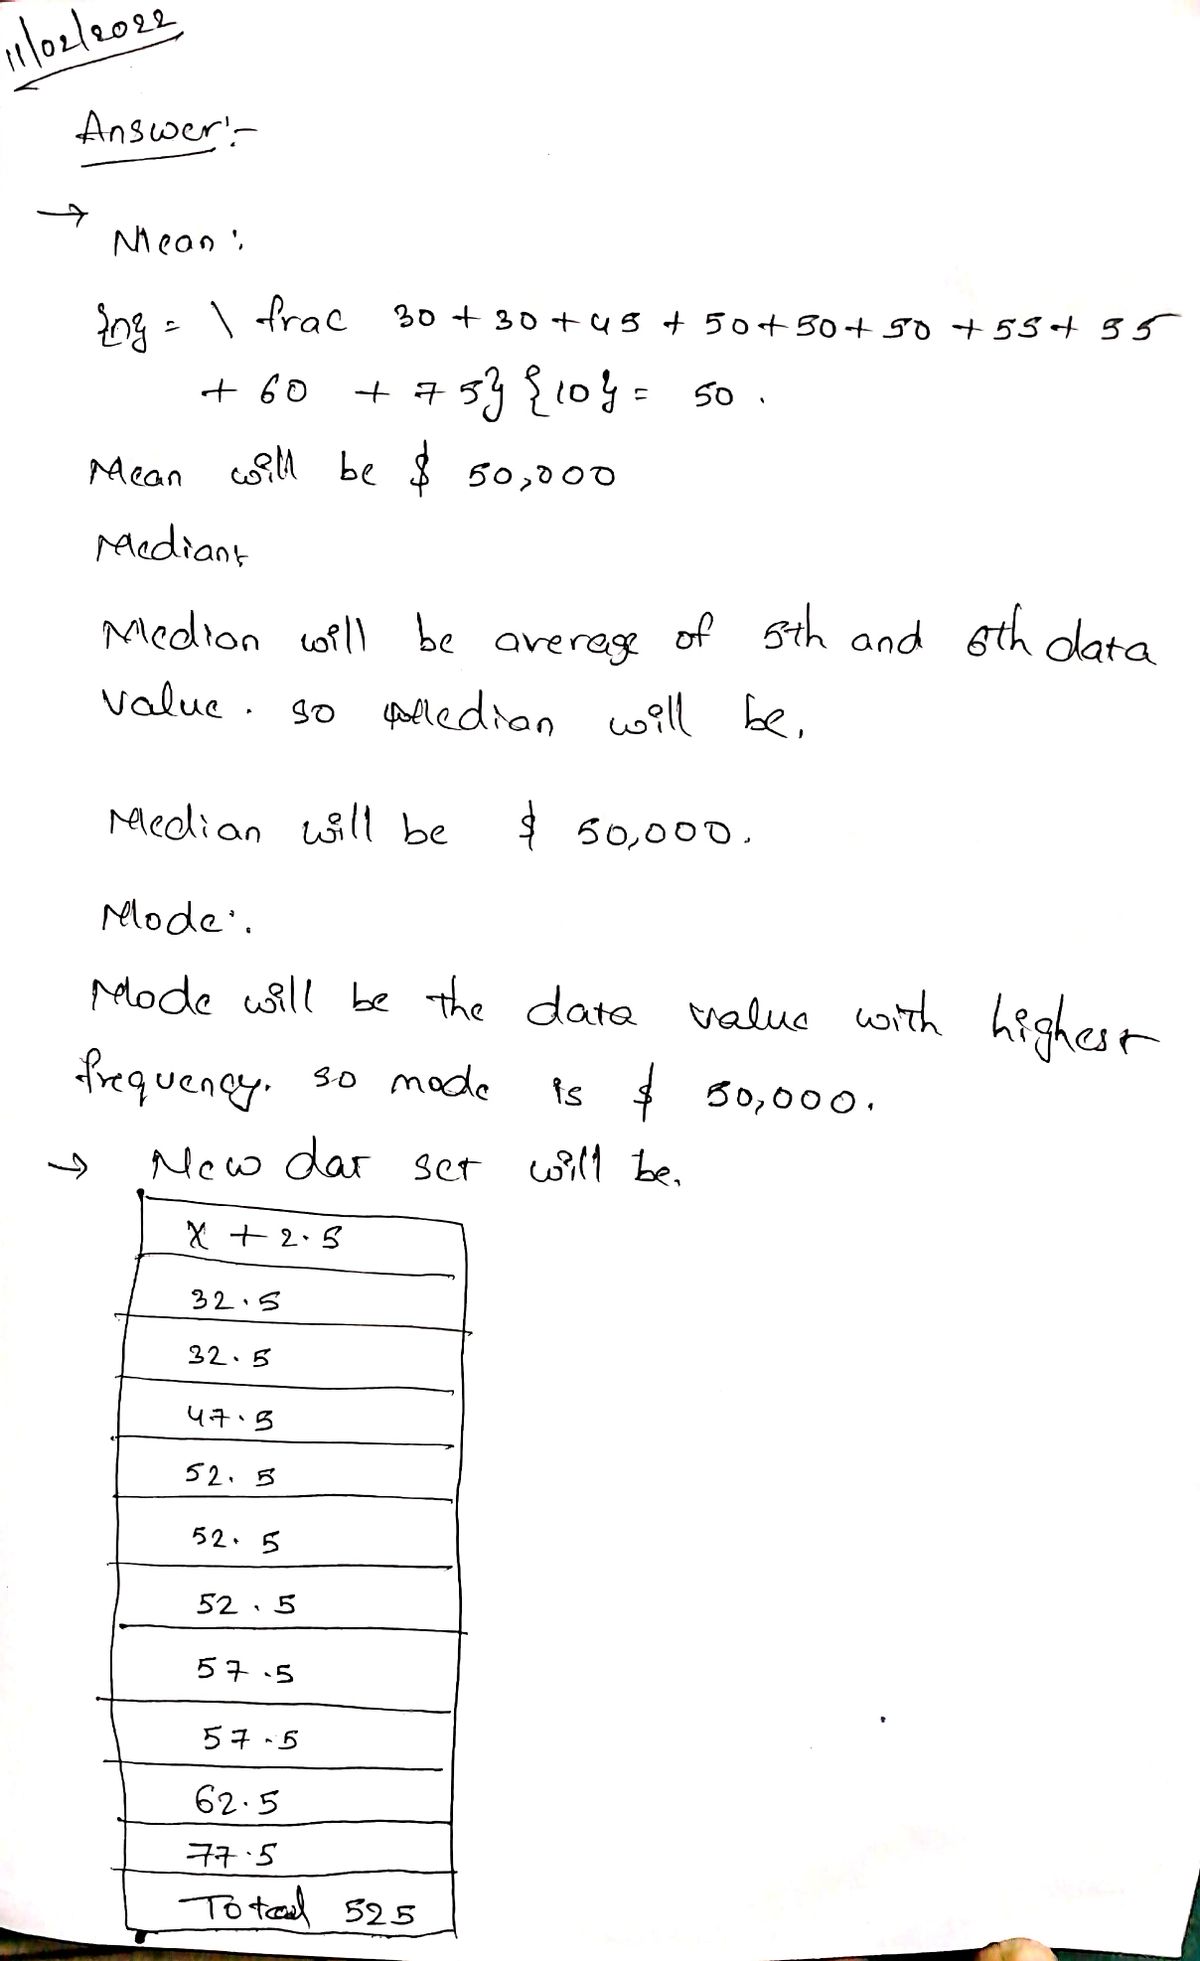 11/02/2022
Answer:-
→
Mean:
{ng = \ frac 30 + 30 + 45 + 50 + 50 + 50 + 55 + 55
+ 60 + 75} {10} = 50 .
Mean will be $ 50,000
Median:
Median will be average of 5th and 6th data
value . so Median will be,
Median will be $ 50,000.
Mode:.
Mode will be the data value with highest
frequency. so mode is $ 50,000.
→ New dat set will be,
X + 2.5
32.5
32.5
47.5
52.5
52.5
52.5
57.5
57.5
62.5
77.5
Total 525